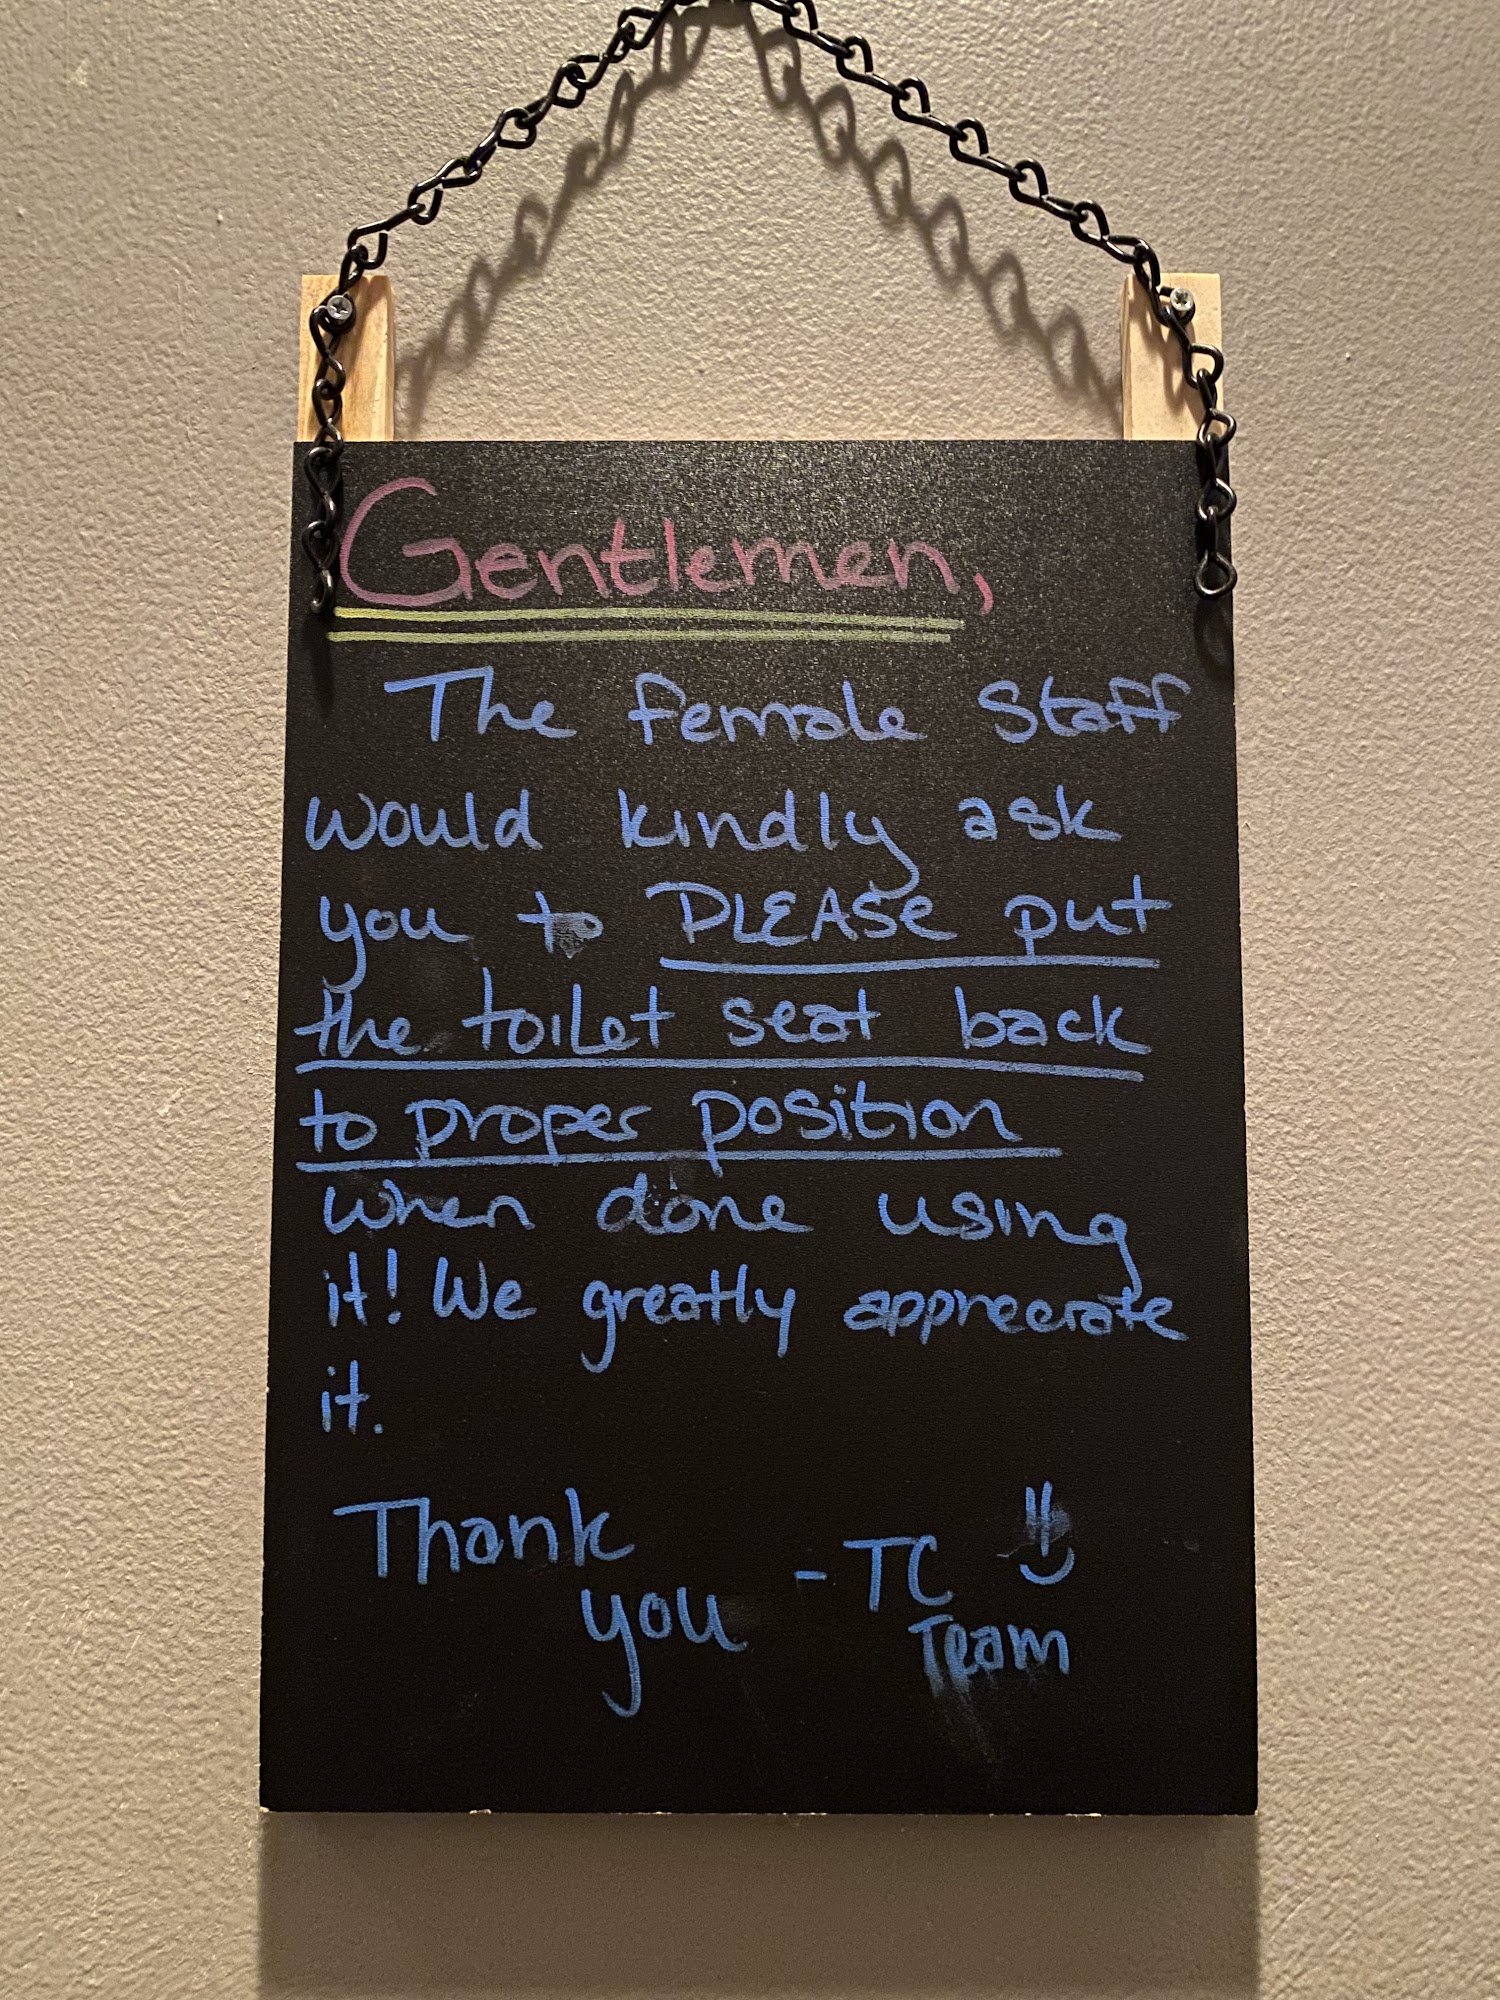 Gentlemen,
The female staff
would kindly ask
you to PLEASE put
the toilet seat back
to proper position
when done using
it! We greatly appreciate
it.
Thank
you - TC
Team